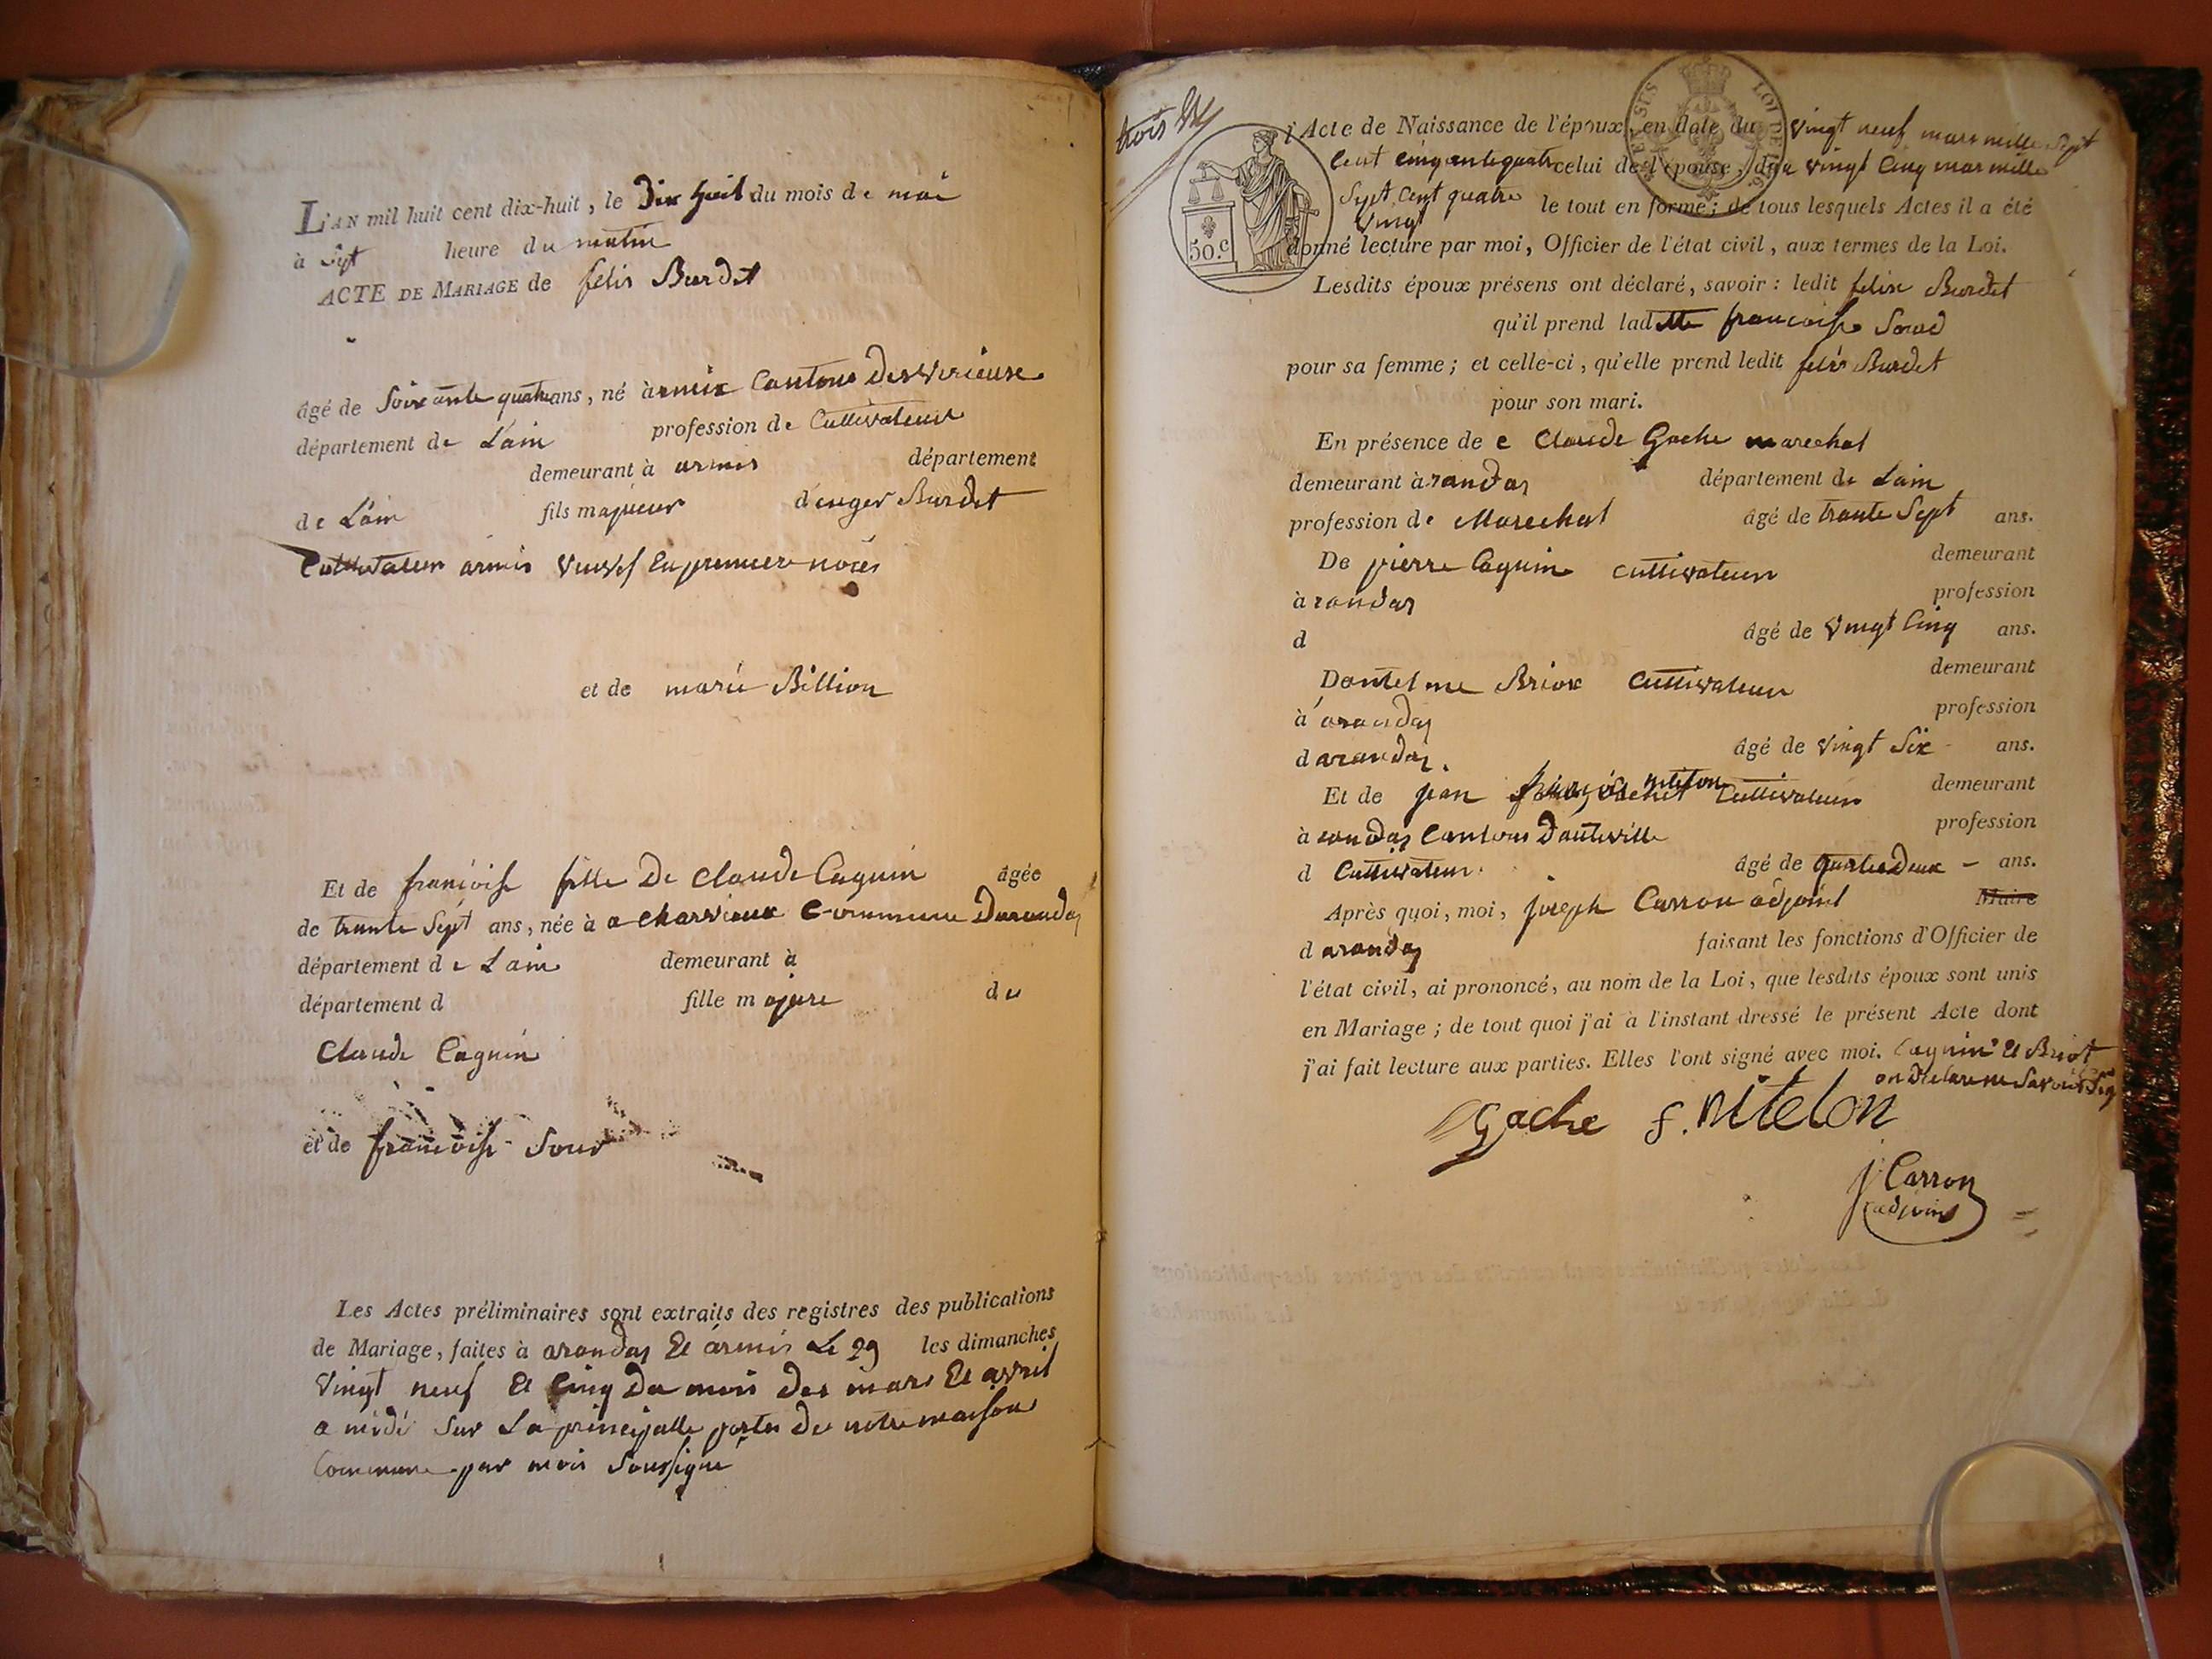 L'AN mil huit cent dix-huit, le Dix huit du mois de mai
à Sept heure du matin
ACTE DE MARIAGE de felix Burdet
âgé de Soixante quatre ans, né à armix Cantons De virieux
département de L'ain profession de Cultivateur
demeurant à armix département
de L'ain fils majeur d'enger Burdet
Cultivateur armix veuf En premier noces
et de marie Billion
Et de françoise fille De Claude Caquin âgée
de trante Sept ans, née à a Charvieux Commune Darandas
département de L'ain demeurant à
département d fille majure de
Claude Caquin
et de françoise Sour
Les Actes préliminaires sont extraits des registres des publications
de Mariage, faites à arandas Et armix Le 29 les dimanches
Vingt neuf Et Cinq Du mois Des mars Et avril
a midi Sur La principalle porter De notre maison
Commune par moi Soussigné
trois
50.c
LOI DE
l'Acte de Naissance de l'époux, en date du vingt neuf mars mille Sept
Cent Cinquante quatre celui de l'épouse, du vingt Cinq mar mille
Sept Cent quatre le tout en forme; de tous lesquels Actes il a été
vingt
donné lecture par moi, Officier de l'état civil, aux termes de la Loi.
Lesdits époux présens ont déclaré, savoir: ledit felix Burdet
qu'il prend ladtte francoise
pour sa femme; et celle-ci, qu'elle prend ledit felix Burdet
pour son mari.
En présence de Claude Gache marechal
demeurant à randas département de L'ain
profession de Marechal âgé de trante Sept ans.
De pierre Caquin cultivateur demeurant
à randas profession
d âgé de Vingt Cinq ans.
Dantelme Briox Cultivateur demeurant
à arandas profession
d arandas. âgé de vingt Six ans.
Et de jean niteton Cultivateur demeurant
à randas Cantons Dauteville profession
d Cultivateur. âgé de quarte Deux - ans.
Après quoi, moi, joseph Carron adjoint Maire
d arandas faisant les fonctions d'Officier de
l'état civil, ai prononcé, au nom de la Loi, que lesdits époux sont unis
en Mariage; de tout quoi j'ai à l'instant dressé le présent Acte dont
j'ai fait lecture aux parties. Elles l'ont signé avec moi. Caquin Et Briot
on Declare ne Savoir Sig
Gache f. nitelon
j Carron
adjoint